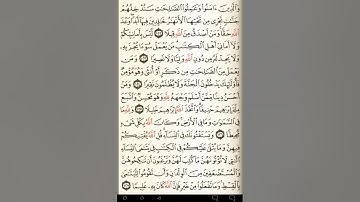 وَٱلَّذِينَ ءَامَنُوا۟ وَعَمِلُوا۟ ٱلصَّـٰلِحَـٰتِ سَنُدْخِلُهُمْ
جَنَّـٰتٍ تَجْرِى مِن تَحْتِهَا ٱلْأَنْهَـٰرُ خَـٰلِدِينَ فِيهَآ أَبَدًا ۖ وَعْدَ
ٱللَّهِ حَقًّا ۚ وَمَنْ أَصْدَقُ مِنَ ٱللَّهِ قِيلًا ١٢٢ لَّيْسَ بِأَمَانِيِّكُمْ
وَلَآ أَمَانِىِّ أَهْلِ ٱلْكِتَـٰبِ ۗ مَن يَعْمَلْ سُوٓءًا يُجْزَ بِهِۦ
وَلَا يَجِدْ لَهُۥ مِن دُونِ ٱللَّهِ وَلِيًّا وَلَا نَصِيرًا ١٢٣ وَمَن
يَعْمَلْ مِنَ ٱلصَّـٰلِحَـٰتِ مِن ذَكَرٍ أَوْ أُنثَىٰ وَهُوَ مُؤْمِنٌ
فَأُو۟لَـٰٓئِكَ يَدْخُلُونَ ٱلْجَنَّةَ وَلَا يُظْلَمُونَ نَقِيرًا ١٢٤ وَمَنْ
أَحْسَنُ دِينًا مِّمَّنْ أَسْلَمَ وَجْهَهُۥ لِلَّهِ وَهُوَ مُحْسِنٌ وَٱتَّبَعَ
مِلَّةَ إِبْرَٰهِيمَ حَنِيفًا ۗ وَٱتَّخَذَ ٱللَّهُ إِبْرَٰهِيمَ خَلِيلًا ١٢٥ وَلِلَّهِ مَا
فِى ٱلسَّمَـٰوَٰتِ وَمَا فِى ٱلْأَرْضِ ۚ وَكَانَ ٱللَّهُ بِكُلِّ شَىْءٍ
مُّحِيطًا ١٢٦ وَيَسْتَفْتُونَكَ فِى ٱلنِّسَآءِ ۖ قُلِ ٱللَّهُ يُفْتِيكُمْ
فِيهِنَّ وَمَا يُتْلَىٰ عَلَيْكُمْ فِى ٱلْكِتَـٰبِ فِى يَتَـٰمَى ٱلنِّسَآءِ
ٱلَّـٰتِى لَا تُؤْتُونَهُنَّ مَا كُتِبَ لَهُنَّ وَتَرْغَبُونَ أَن تَنكِحُوهُنَّ
وَٱلْمُسْتَضْعَفِينَ مِنَ ٱلْوِلْدَٰنِ وَأَن تَقُومُوا۟ لِلْيَتَـٰمَىٰ
بِٱلْقِسْطِ ۚ وَمَا تَفْعَلُوا۟ مِنْ خَيْرٍ فَإِنَّ ٱللَّهَ كَانَ بِهِۦ عَلِيمًا ١٢٧